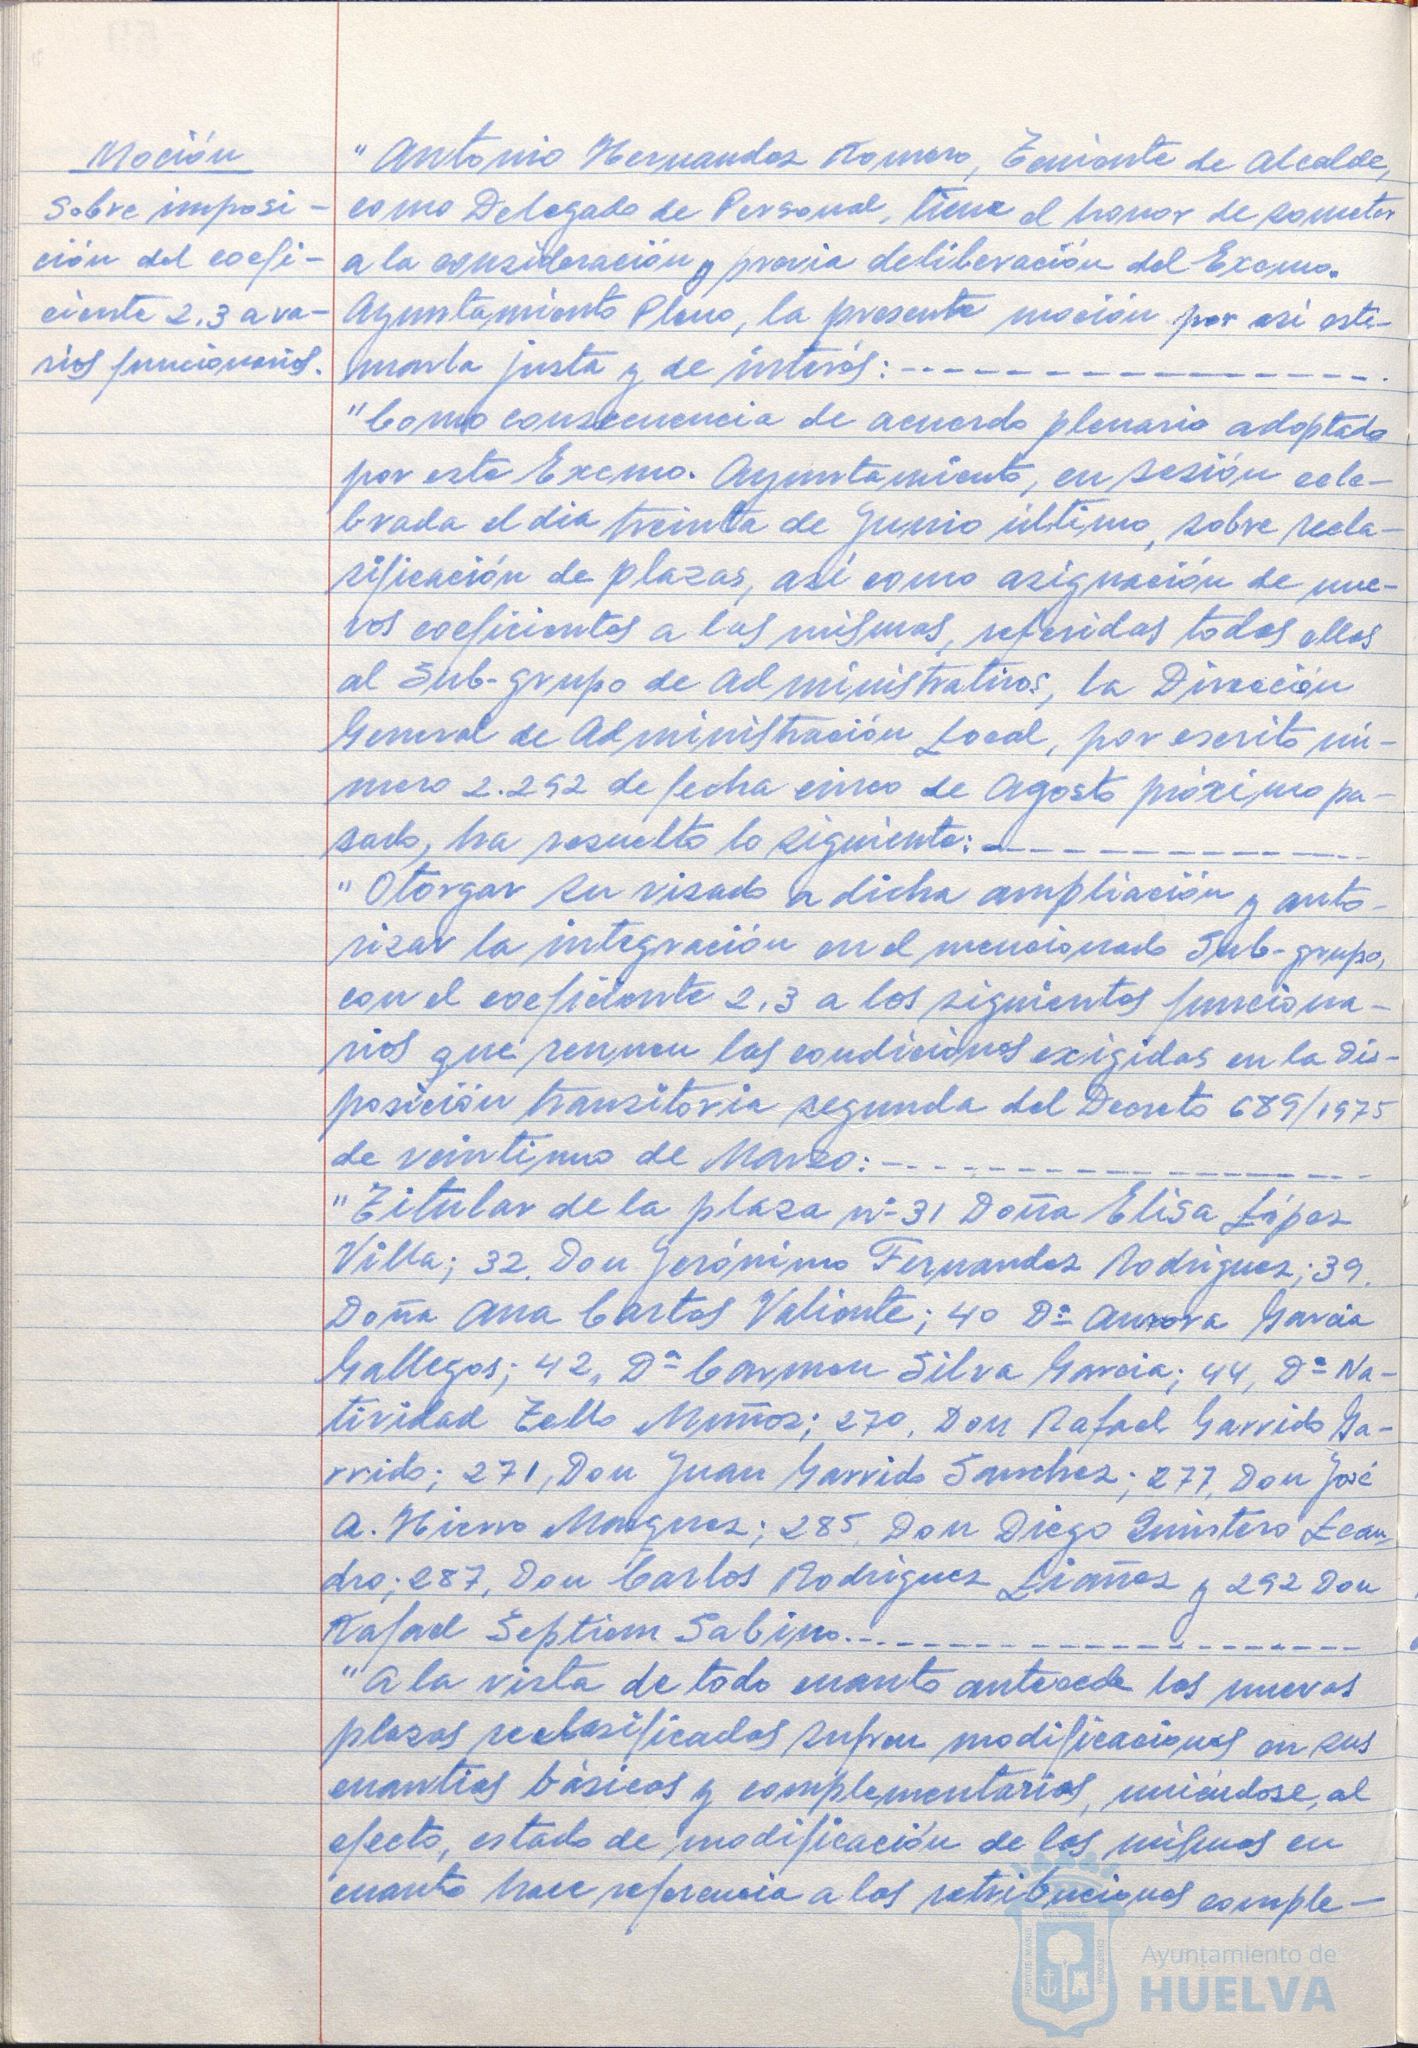 Moción
Sobre imposi-
ción del coefi-
ciente 2,3 a va-
rios funcionarios.
"Antonio Hernandez Romero, Teniente de Alcalde,
como Delegado de Personal, tiene el honor de someter
a la consideración y previa deliberación del Excmo.
Ayuntamiento Pleno, la presente moción por asi esti-
marla justa y de interés:
"Como consecuencia de acuerdo plenario adoptado
por este Excmo. Ayuntamiento, en sesión cele-
brada el dia treinta de Junio último, sobre recla-
sificación de plazas, asi como asignación de nue-
vos coeficientes a las mismas, referidas todas ellas
al Sub-grupo de Administrativos, la Dirección
General de Administración Local, por escrito nú-
mero 2.292 de fecha cinco de Agosto próximo pa-
sado, ha resuelto lo siguiente:
"Otorgar su visado a dicha ampliación y auto-
rizar la integración en el mencionado Sub-grupo,
con el coeficiente 2,3 a los siguientes funciona-
rios que reunen las condiciones exigidas en la Dis-
posición transitoria segunda del Decreto 689/1975
de veintiuno de Marzo:
"Titular de la plaza nº 31 Doña Elisa López
Villa; 32, Don Jerónimo Fernandez Rodriguez; 39,
Doña Ana Cartes Valiente; 40 Dª Aurora Garcia
Gallegos; 42, Dª Carmen Silva Garcia; 44, Dª Na-
tividad Tello Muñoz; 270, Don Rafael Garrido Ga-
rrido; 271, Don Juan Garrido Sanchez; 277, Don José
A. Hierro Marquez; 285, Don Diego Quintero Lean-
dro; 287, Don Carlos Rodriguez Liañez y 292 Don
Rafael Septiem Sabino.
"A la vista de todo cuanto antecede las nuevas
plazas reclasificadas sufren modificaciones en sus
cuantias básicas y complementarias, uniéndose, al
efecto, estado de modificación de los mismos en
cuanto hace referencia a las retribuciones comple-
Ayuntamiento de
HUELVA